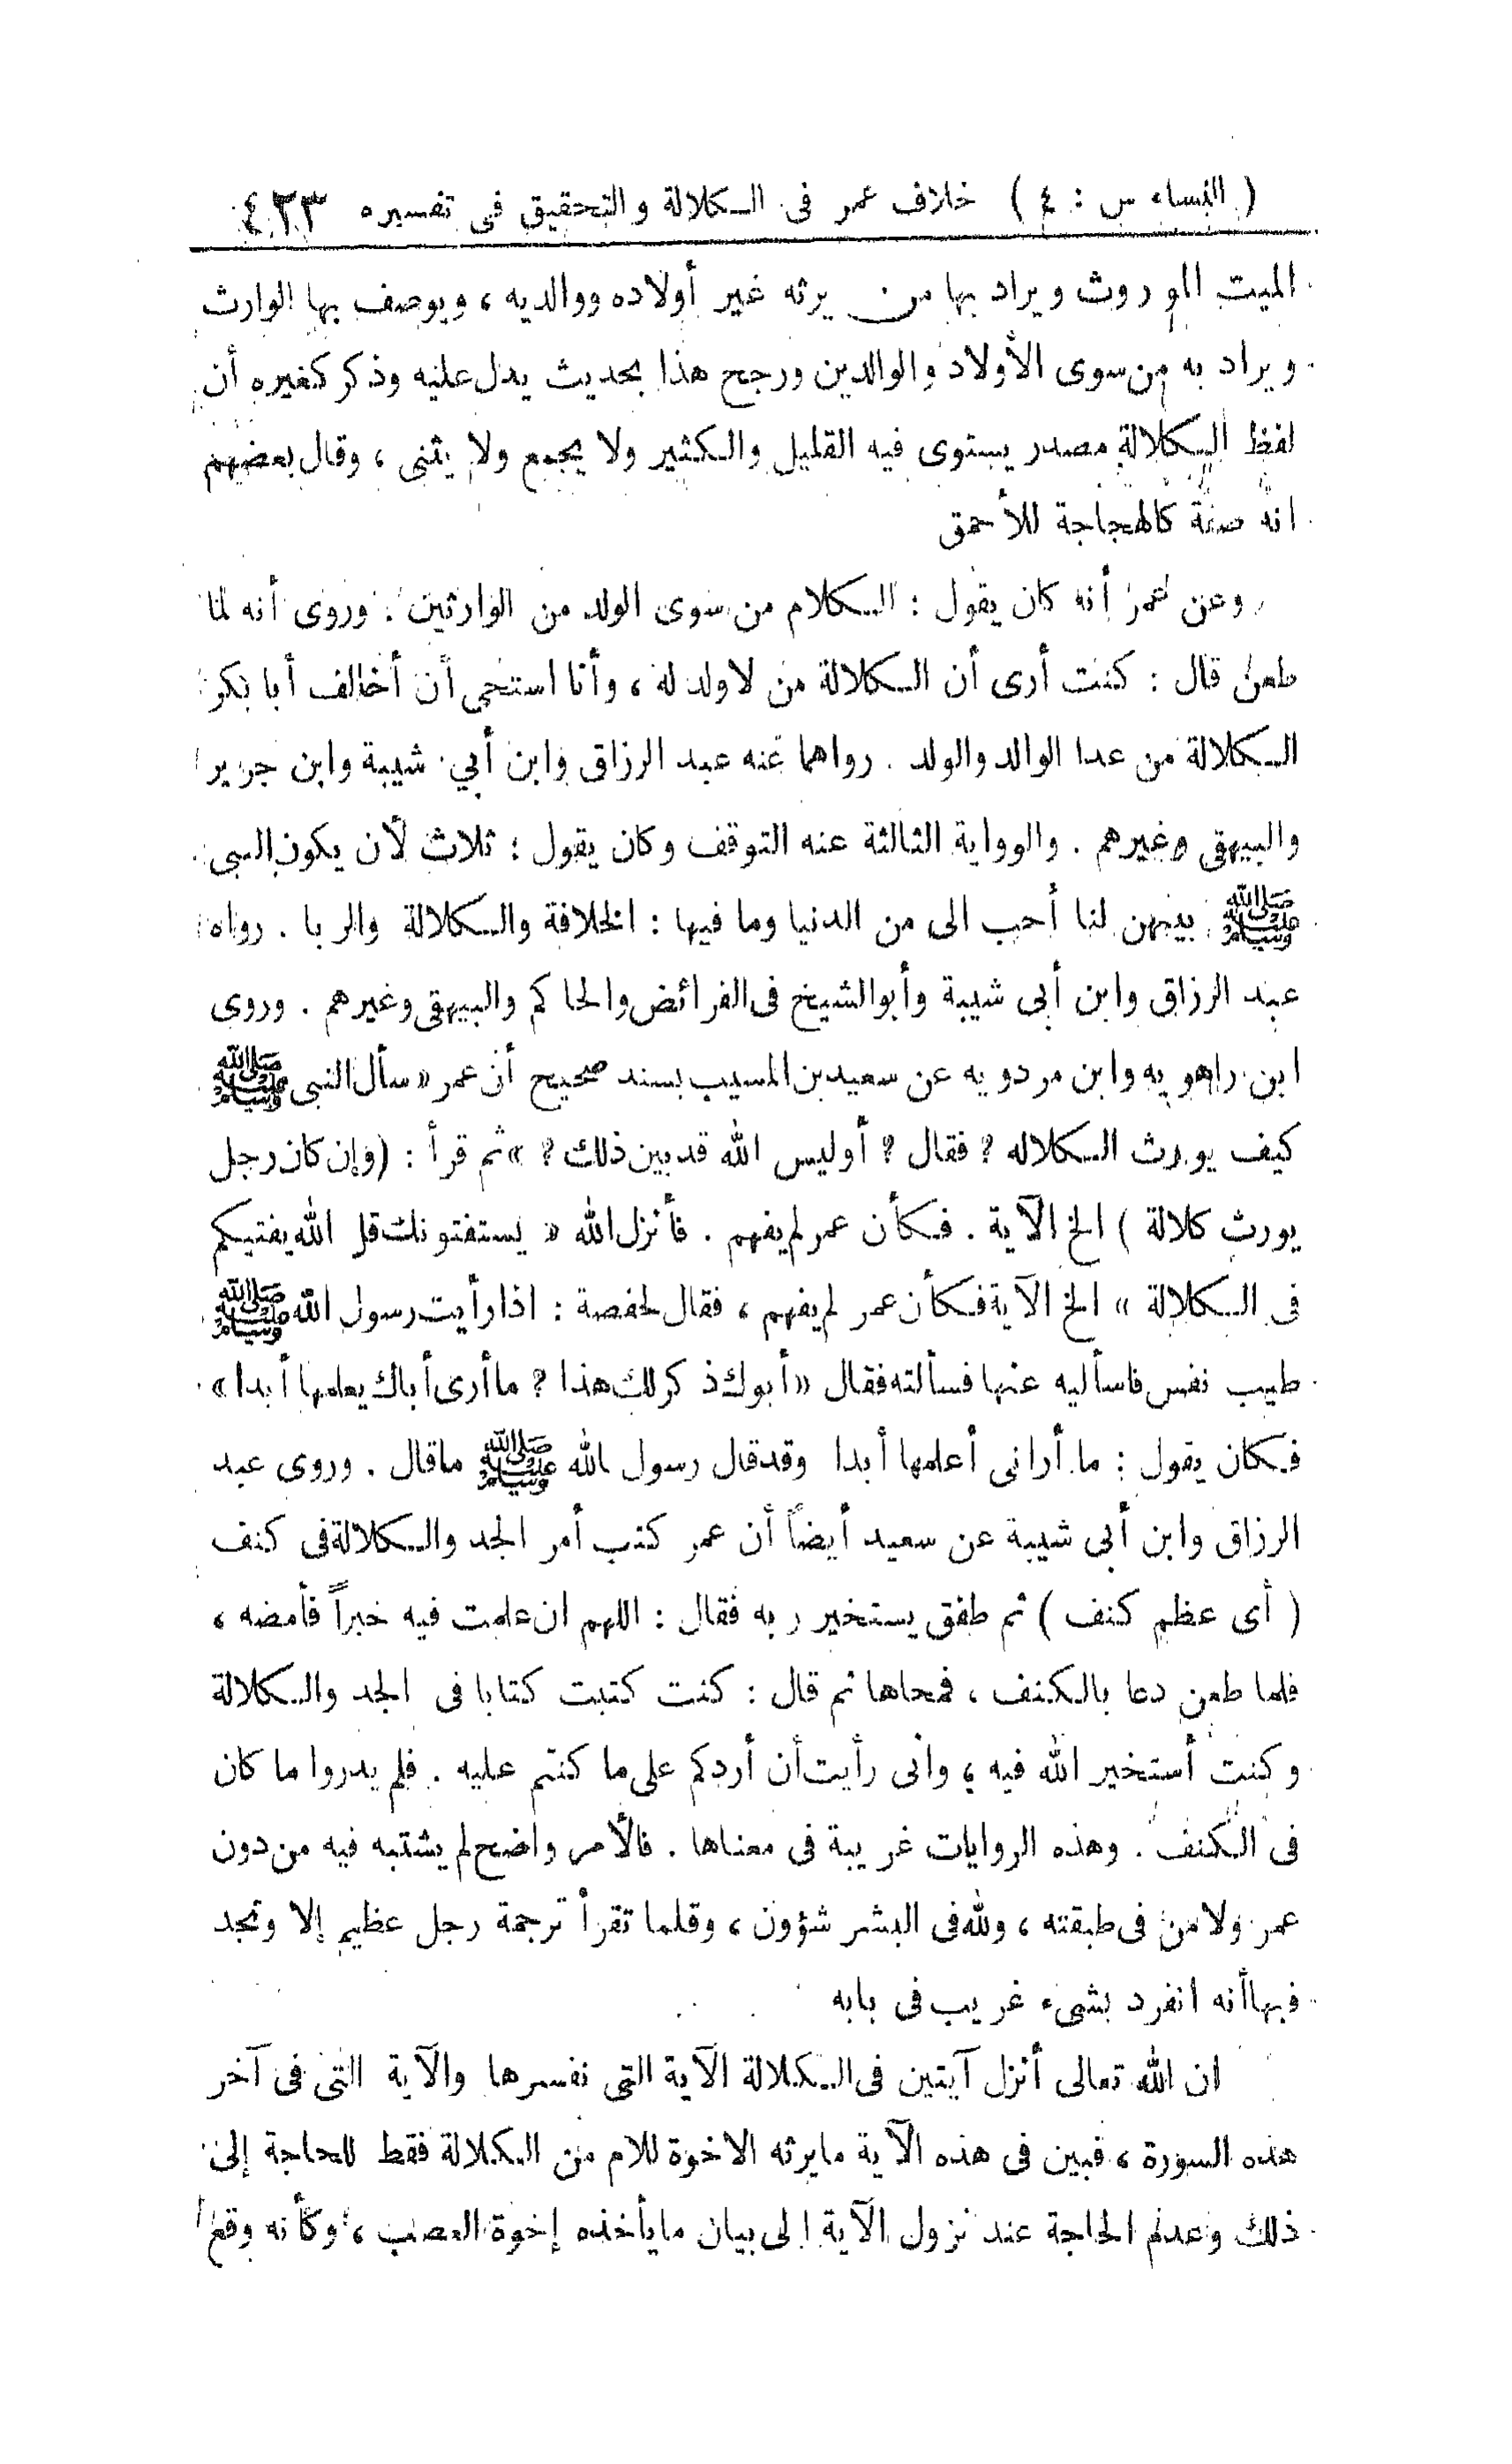 ( النساء س : ٤ ) خلاف عمر فى الكلالة والتحقيق فى تفسيره ٤٢٣
الميت الموروث ويراد بها من يرثه غير أولاده ووالديه ، ويوصف بها الوارث
ويراد به من سوى الأولاد والوالدين ورجح هذا بحديث يدل عليه وذكر كغيره أن
لفظ الكلالة مصدر يستوى فيه القليل والكثير ولا يجمع ولا يثنى ، وقال بعضهم
انه صفة كالهجاجة للأحمق
وعن عمر أنه كان يقول : الكلام من سوى الولد من الوارثين . وروى أنه لما
طعن قال : كنت أرى أن الكلالة من لا ولد له ، وأنا استحى أن أخالف أبا بكر
الكلالة من عدا الوالد والولد . رواهما عنه عبد الرزاق وابن أبي شيبة وابن جرير
والبيهقى وغيرهم . والوواية الثالثة عنه التوقف وكان يقول : ثلاث لأن يكون النبى
ﷺ بينهن لنا أحب الى من الدنيا وما فيها : الخلافة والكلالة والربا . رواه
عبد الرزاق وابن أبى شيبة وأبو الشيخ فى الفرائض والحاكم والبيهقى وغيرهم . وروى
ابن راهويه وابن مردويه عن سعيد بن المسيب بسند صحيح أن عمر « سأل النبى ﷺ
كيف يورث الكلاله ? فقال ? أو ليس الله قد بين ذلك ? » ثم قرأ : (وإن كان رجل
يورث كلالة ) الخ الآية . فكأن عمر لم يفهم . فأنزل الله « يستفتونك قل الله يفتيكم
فى الكلالة » الخ الآية فكأن عمر لم يفهم ، فقال لحفصة : اذا رأيت رسول الله ﷺ
طيب نفس فاسأليه عنها فسألته فقال « أبوك ذكر لك هذا ? ما أرى أباك يعلمها أبدا »
فكان يقول : ما أرانى أعلمها أبدا وقد قال رسول الله ﷺ ماقال . وروى عبد
الرزاق وابن أبى شيبة عن سعيد أيضاً أن عمر كتب أمر الجد والكلالة فى كنف
( أى عظم كنف ) ثم طفق يستخير ربه فقال : اللهم ان علمت فيه خيراً فأمضه ،
فلما طعن دعا بالكنف ، فمحاها ثم قال : كنت كتبت كتابا فى الجد والكلالة
وكنت أستخير الله فيه ، وانى رأيت أن أردكم على ما كنتم عليه . فلم يدروا ما كان
فى الكنف . وهذه الروايات غريبة فى معناها . فالأمر واضح لم يشتبه فيه من دون
عمر ولا من فى طبقته ، ولله فى البشر شؤون ، وقلما تقرأ ترجمة رجل عظيم إلا وتجد
فيها أنه انفرد بشىء غريب فى بابه
ان الله تعالى أنزل آيتين فى الكلالة الآية التى نفسرها والآية التى فى آخر
هذه السورة ، فبين فى هذه الآية مايرثه الاخوة للام من الكلالة فقط للحاجة إلى
ذلك وعدم الحاجة عند نزول الآية الى بيان مايأخذه إخوة العصب ، وكأنه وقع